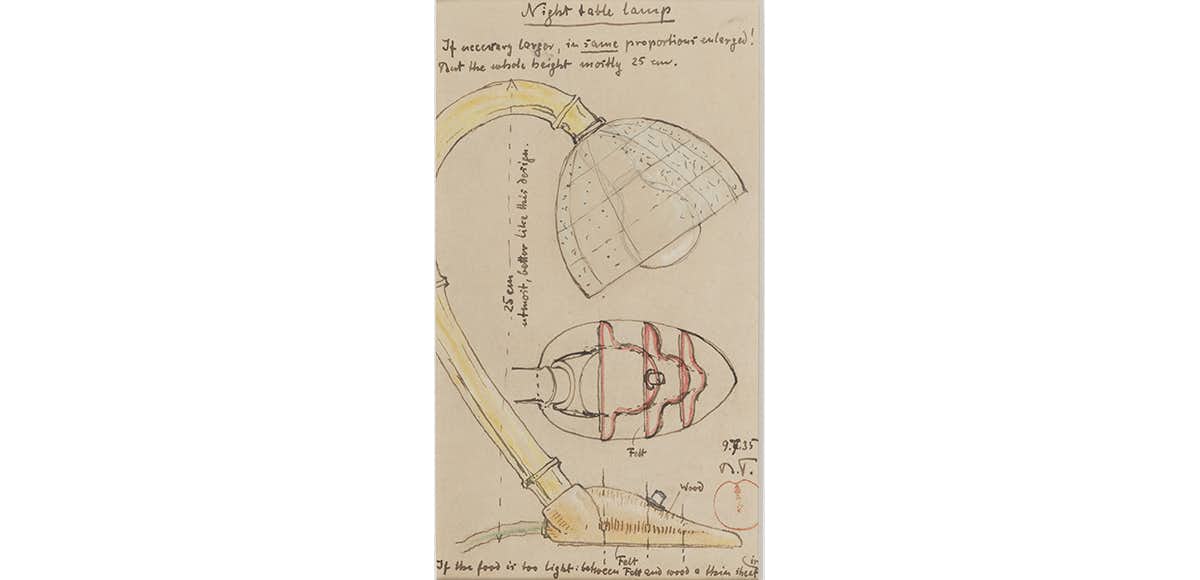 Night table lamp
If necessary larger, in same proportions enlarged!
But the whole height mostly 25 cm.
25 cm
utmost, better like this design.
Felt
35
B.T.
Wood
Felt
If the food is too light: between Felt and wood a thin sheet